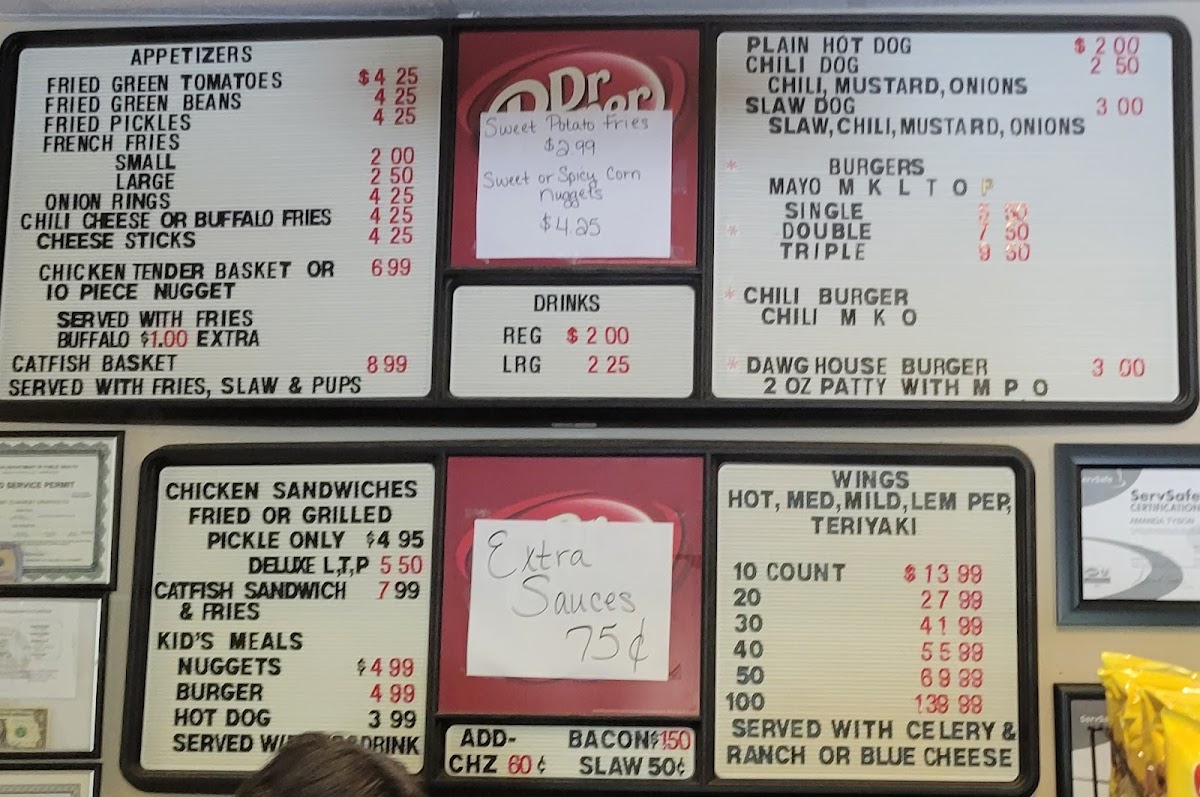 APPETIZERS
FRIED GREEN TOMATOES $4 25
FRIED GREEN BEANS 4 25
FRIED PICKLES 4 25
FRENCH FRIES
SMALL 2 00
LARGE 2 50
ONION RINGS 4 25
CHILI CHEESE OR BUFFALO FRIES 4 25
CHEESE STICKS 4 25
CHICKEN TENDER BASKET OR 6 99
10 PIECE NUGGET
SERVED WITH FRIES
BUFFALO $1.00 EXTRA
CATFISH BASKET 8 99
SERVED WITH FRIES, SLAW & PUPS
Dr
Sweet Potato Fries
$2.99
Sweet or Spicy Corn
Nuggets
$4.25
DRINKS
REG $ 2 00
LRG 2 25
PLAIN HOT DOG $ 2 00
CHILI DOG 2 50
CHILI, MUSTARD, ONIONS
SLAW DOG 3 00
SLAW, CHILI, MUSTARD, ONIONS
* BURGERS
MAYO M K L T O P
SINGLE
* DOUBLE 7 50
TRIPLE 9 50
* CHILI BURGER
CHILI M K O
* DAWG HOUSE BURGER 3 00
2 OZ PATTY WITH M P O
SERVICE PERMIT
CHICKEN SANDWICHES
FRIED OR GRILLED
PICKLE ONLY $4 95
DELUXE L,T,P 5 50
CATFISH SANDWICH 7 99
& FRIES
KID'S MEALS
NUGGETS $4 99
BURGER 4 99
HOT DOG 3 99
SERVED DRINK
Extra
Sauces
75¢
ADD- BACON $1 50
CHZ 60 ¢ SLAW 50¢
WINGS
HOT, MED, MILD, LEM PEP,
TERIYAKI
10 COUNT $ 13 99
20 27 99
30 41 99
40 55 99
50 69 99
100 139 99
SERVED WITH CELERY &
RANCH OR BLUE CHEESE
ServSafe
CERTIFICATION